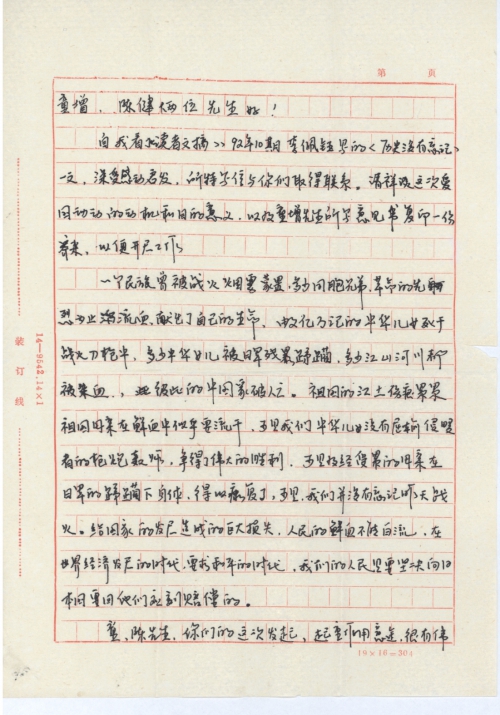 第 页
童增、陈健两位先生好!
自我看《读者文摘》92年10期 李佩钰 的《历史没有忘记》
一文,深受感动启发,所特写信与你们取得联系。请 这次爱
国动 的动机和目的意义,以及童增先生所写意见书复印一份
寄来,以便开展工作。
一个民族曾被战火烟云蒙罩,多少同胞兄弟,革命的先
烈 流血,献出了自己的生命、 的中华儿女死于
战火刀枪中,多少中华女儿被日军残暴蹂躏,多少江山河川
被染血, 的中国家破人亡。祖国的江土伤痕累累
祖国 在鲜血中似乎要流干,可是我们中华儿女没有屈 侵略
者的枪炮 ,争得了伟大的胜利,可是 在
日军的蹂躏下 ,得以康复了,可是,我们并没有忘记昨天战
火。给国家的发展造成的巨大损失,人民的鲜血不能白流,在
世界经济发展的时代,要求和平的时代,我们的人民是要坚决向日
本国要回他们应到赔偿的。
童、陈先生,你们的这次发起, ,很有伟
装订线
14—9542.14×1
(19×16=304)